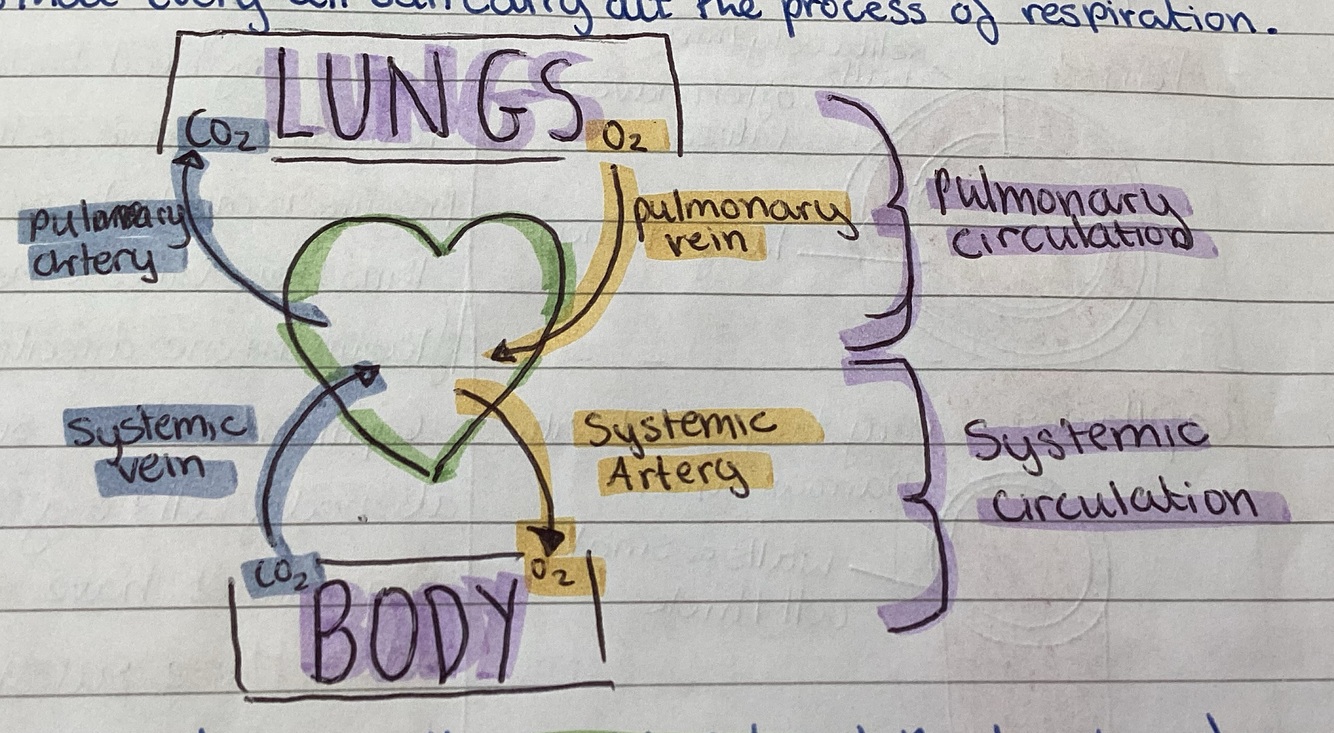 out the process of respiration.
LUNGS
CO2
O2
pulmonary
artery
pulmonary
vein
pulmonary
circulation
Systemic
vein
Systemic
Artery
Systemic
circulation
CO2
O2
BODY